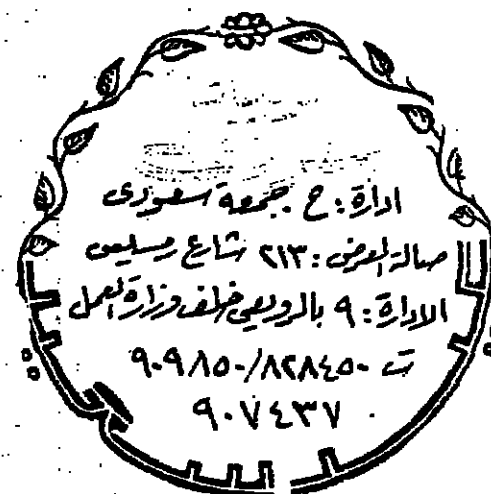 ادارة : ح . جمعة سعودى
صالة العرض : ٢١٣ شارع رمسيس
الادارة : ٩ بالرويعى خلف وزارة العمل
ت ٨٢٨٤٥٠/٩٠٩٨٥٠
٩٠٧٤٣٧